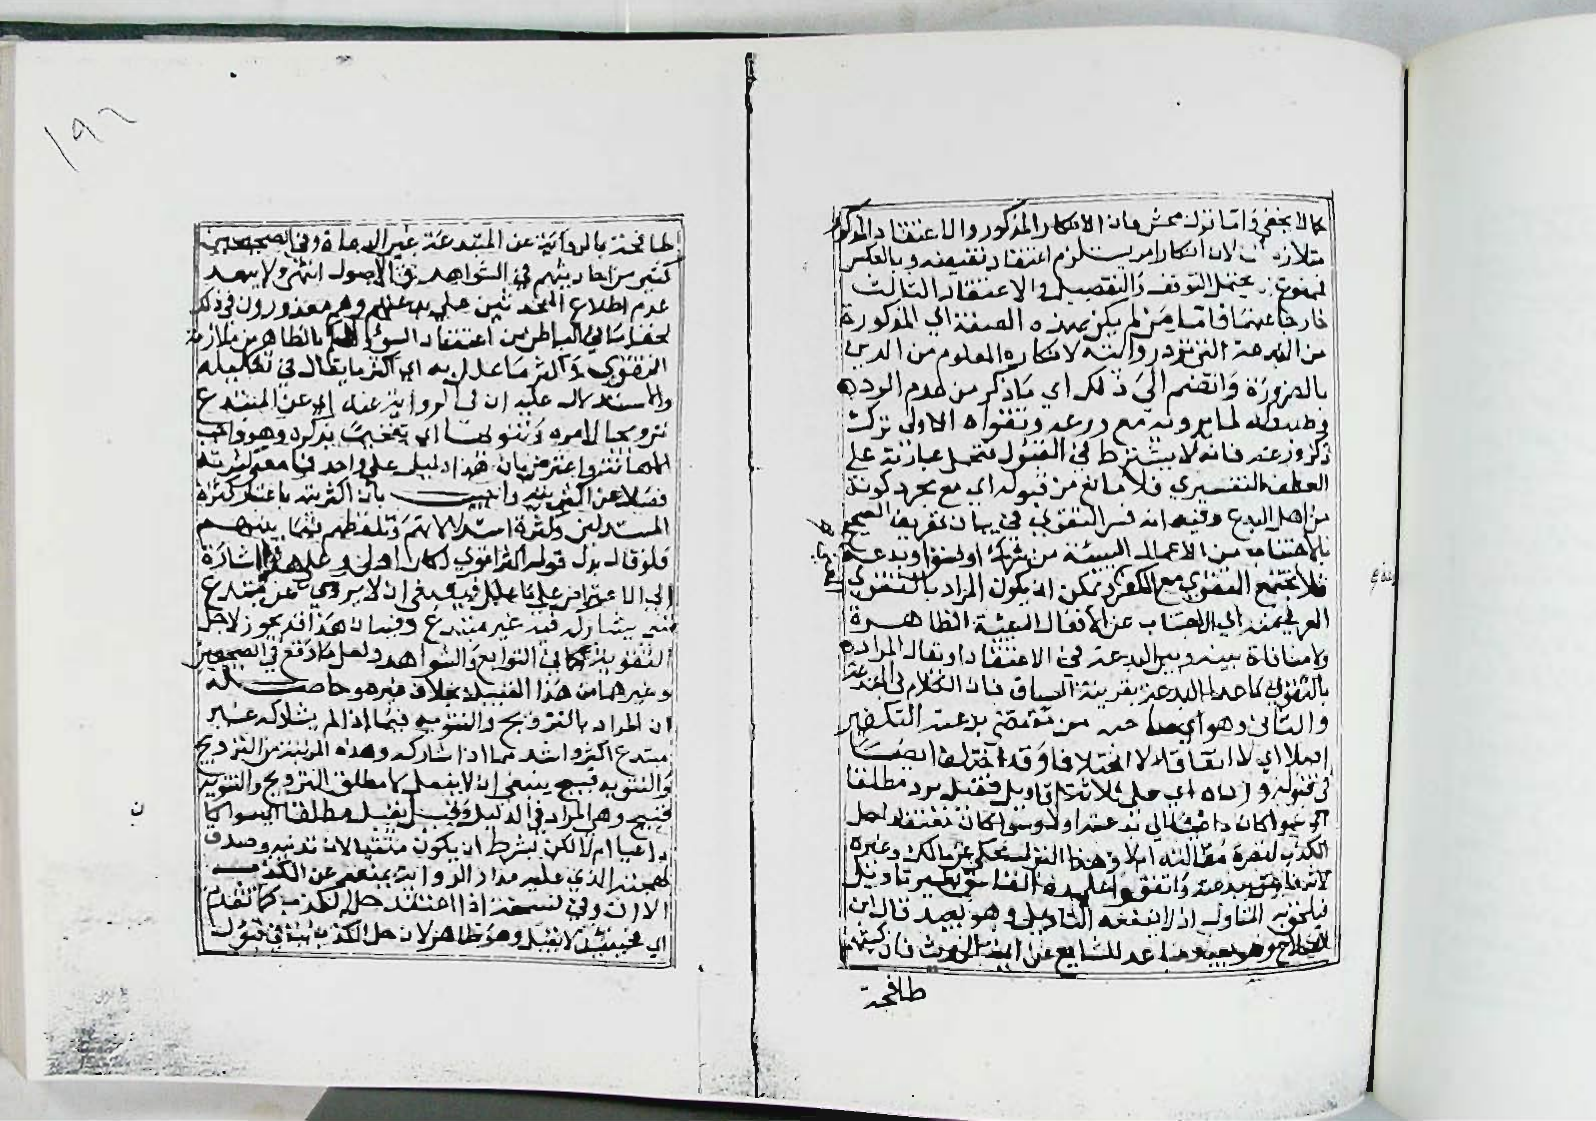 كما لا يخفى واما نزل محش فان الانكار المذكور والاعتقاد المذكور
متلازمان لان انكار امر يستلزم اعتقاد نقيضه وبالعكس
فممنوع يحتمل التوقف والتفصيل والاعتقاد الثالث
خارجا عنهما فاما من لم يكن بهذه الصفة اي المذكورة
من البدعة التي ترد روايته لانكاره المعلوم من الدين
بالضرورة وانضم الى ذلك اي ما ذكر من عدم الرد
وضبطه لما يرويه مع ورعه وتقواه الاولى ترك
ذكر ورعه فانه لا يشترط في القبول فتحمل عبارته على
العطف التفسيري فلا مانع من قبوله اي مع مجرد كونه
من اهل البدع وفيه انه فسر التقوى في بيان تعريف الصحيح
بالاجتناب من الاعمال السيئة من شرك او فسق او بدعة
فلا تجتمع التقوى مع يمكن ان يكون المراد بالتقوى
العرفي معنى الاجتناب عن الافعال السيئة الظاهرة
ولا منافاة بينه وبين البدعة في الاعتقاد او يقال المراد
بالتقوى ما عدا البدعة بقرينة السياق فان الكلام في المبتدعة
والثاني وهو اي من يقتضي بدعته التكفير
اصلا اي لا اتفاقا ولا اختلافا وقد اختلف ايضا
في قبوله ورده اي على ثلاثة اقاويل فقيل يرد مطلقا
اي سواء كان داعيا الى بدعته او لا وسواء كان يعتقد حل
الكذب لنصرة مقالته ام لا وهذا القول محكي عن مالك وغيره
لانه فاسق ببدعته واتفقوا على رد الفاسق بغير تاويل
فيلحق به المتاول اذ لا ينفعه التاويل وهو بعيد قال ابن
الصلاح وهو بعيد مباعد للشايع عن ائمة الحديث فان كتبهم
طافحة
طافحة بالرواية عن المبتدعة غير الدعاة وفي الصحيحين
كثير من احاديثهم في الشواهد والاصول انتهى ولا يبعد
عدم اطلاع المحدثين على بدعتهم وهم معذورون في ذلك
لخفا ما في الباطن من اعتقاد السوء بالظاهر من ملازمة
التقوى واكثر ما علل به اي اكثر ما يقال في تعليله
والاستدلال عليه ان في الرواية عنه اي عن المبتدع
ترويجا لامره وتنويها اي تفخيما بذكره وهو واجب
الاهانة واعترض بان هذا دليل على واحد فما معنى كثرته
فضلا عن اكثريته واجيب بان اكثريته باعتبار كثرة
المستدلين وكثرة استدلالاتهم وتلفظهم فيما بينهم
فلو قال بدل قوله اكثر اقوى لكان اولى وعلى هذا اشارة
الى الاعتراض على ما علل فينبغي ان لا يروى عن مبتدع
شيء يشاركه فيه غير مبتدع وفيه ان هذا قد يجوز لاجل
التقوية كما في التوابع والشواهد ولعل ما وقع في الصحيحين
وغيرهما من هذا القبيل بخلاف غيره وحاصله
ان المراد بالترويج والتنويه فيما اذا لم يشاركه غير
مبتدع اكثر واشد مما اذا شاركه وهذه المرتبة من الترويج
والتنويه قبيح ينبغي ان لا يفعل لا مطلق الترويج والتنويه
قبيح وهو المراد في الدليل وقيل يقبل مطلقا اي سواء كان
داعيا ام لا لكن بشرط ان يكون متقيا لان تدينه وصدق
لهجته الذي عليه مدار الرواية يمنعه عن الكذب
الا ان وفي نسخة اذا اعتقد حل الكذب كما تقدم
اي فحينئذ لا يقبل وهو ظاهر لان حل الكذب في قبول
ن
١٩٢